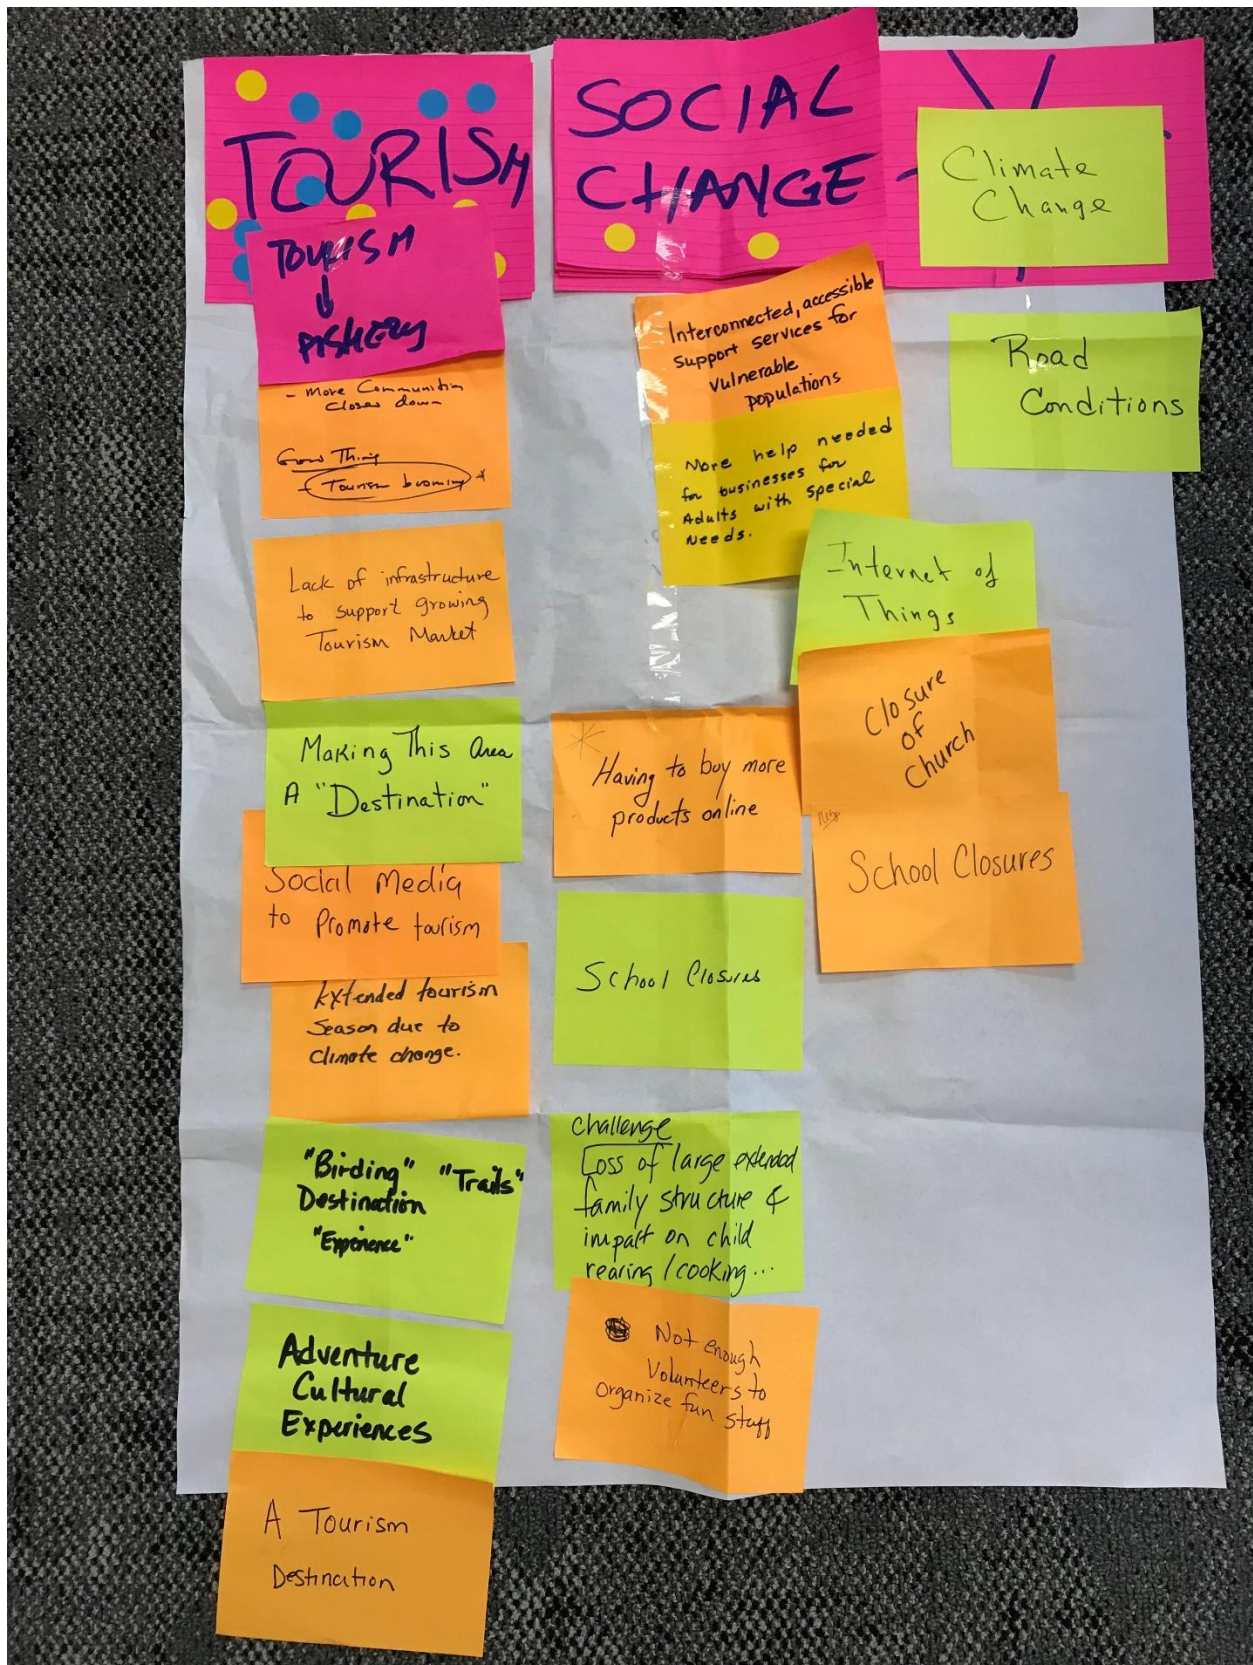 TOURISM
TOURISM
FISHERY
- More Communities
closes down
Grow Thing
- Tourism booming *
Lack of infrastructure
to support growing
Tourism Market
Making This Area
A "Destination"
Social Media
to Promote tourism
Extended tourism
Season due to
climate change.
"Birding" "Trails"
Destination
"Experience"
Adventure
Cultural
Experiences
A Tourism
Destination
SOCIAL
CHANGE -
Interconnected, accessible
support services for
vulnerable
populations
More help needed
for businesses for
Adults with special
Needs.
Having to buy more
products online
School Closures
challenge
Loss of large extended
family structure &
impact on child
rearing / cooking...
Not enough
Volunteers to
organize fun stuff
Climate
Change
Road
Conditions
Internet of
Things
Closure
of
Church
School Closures